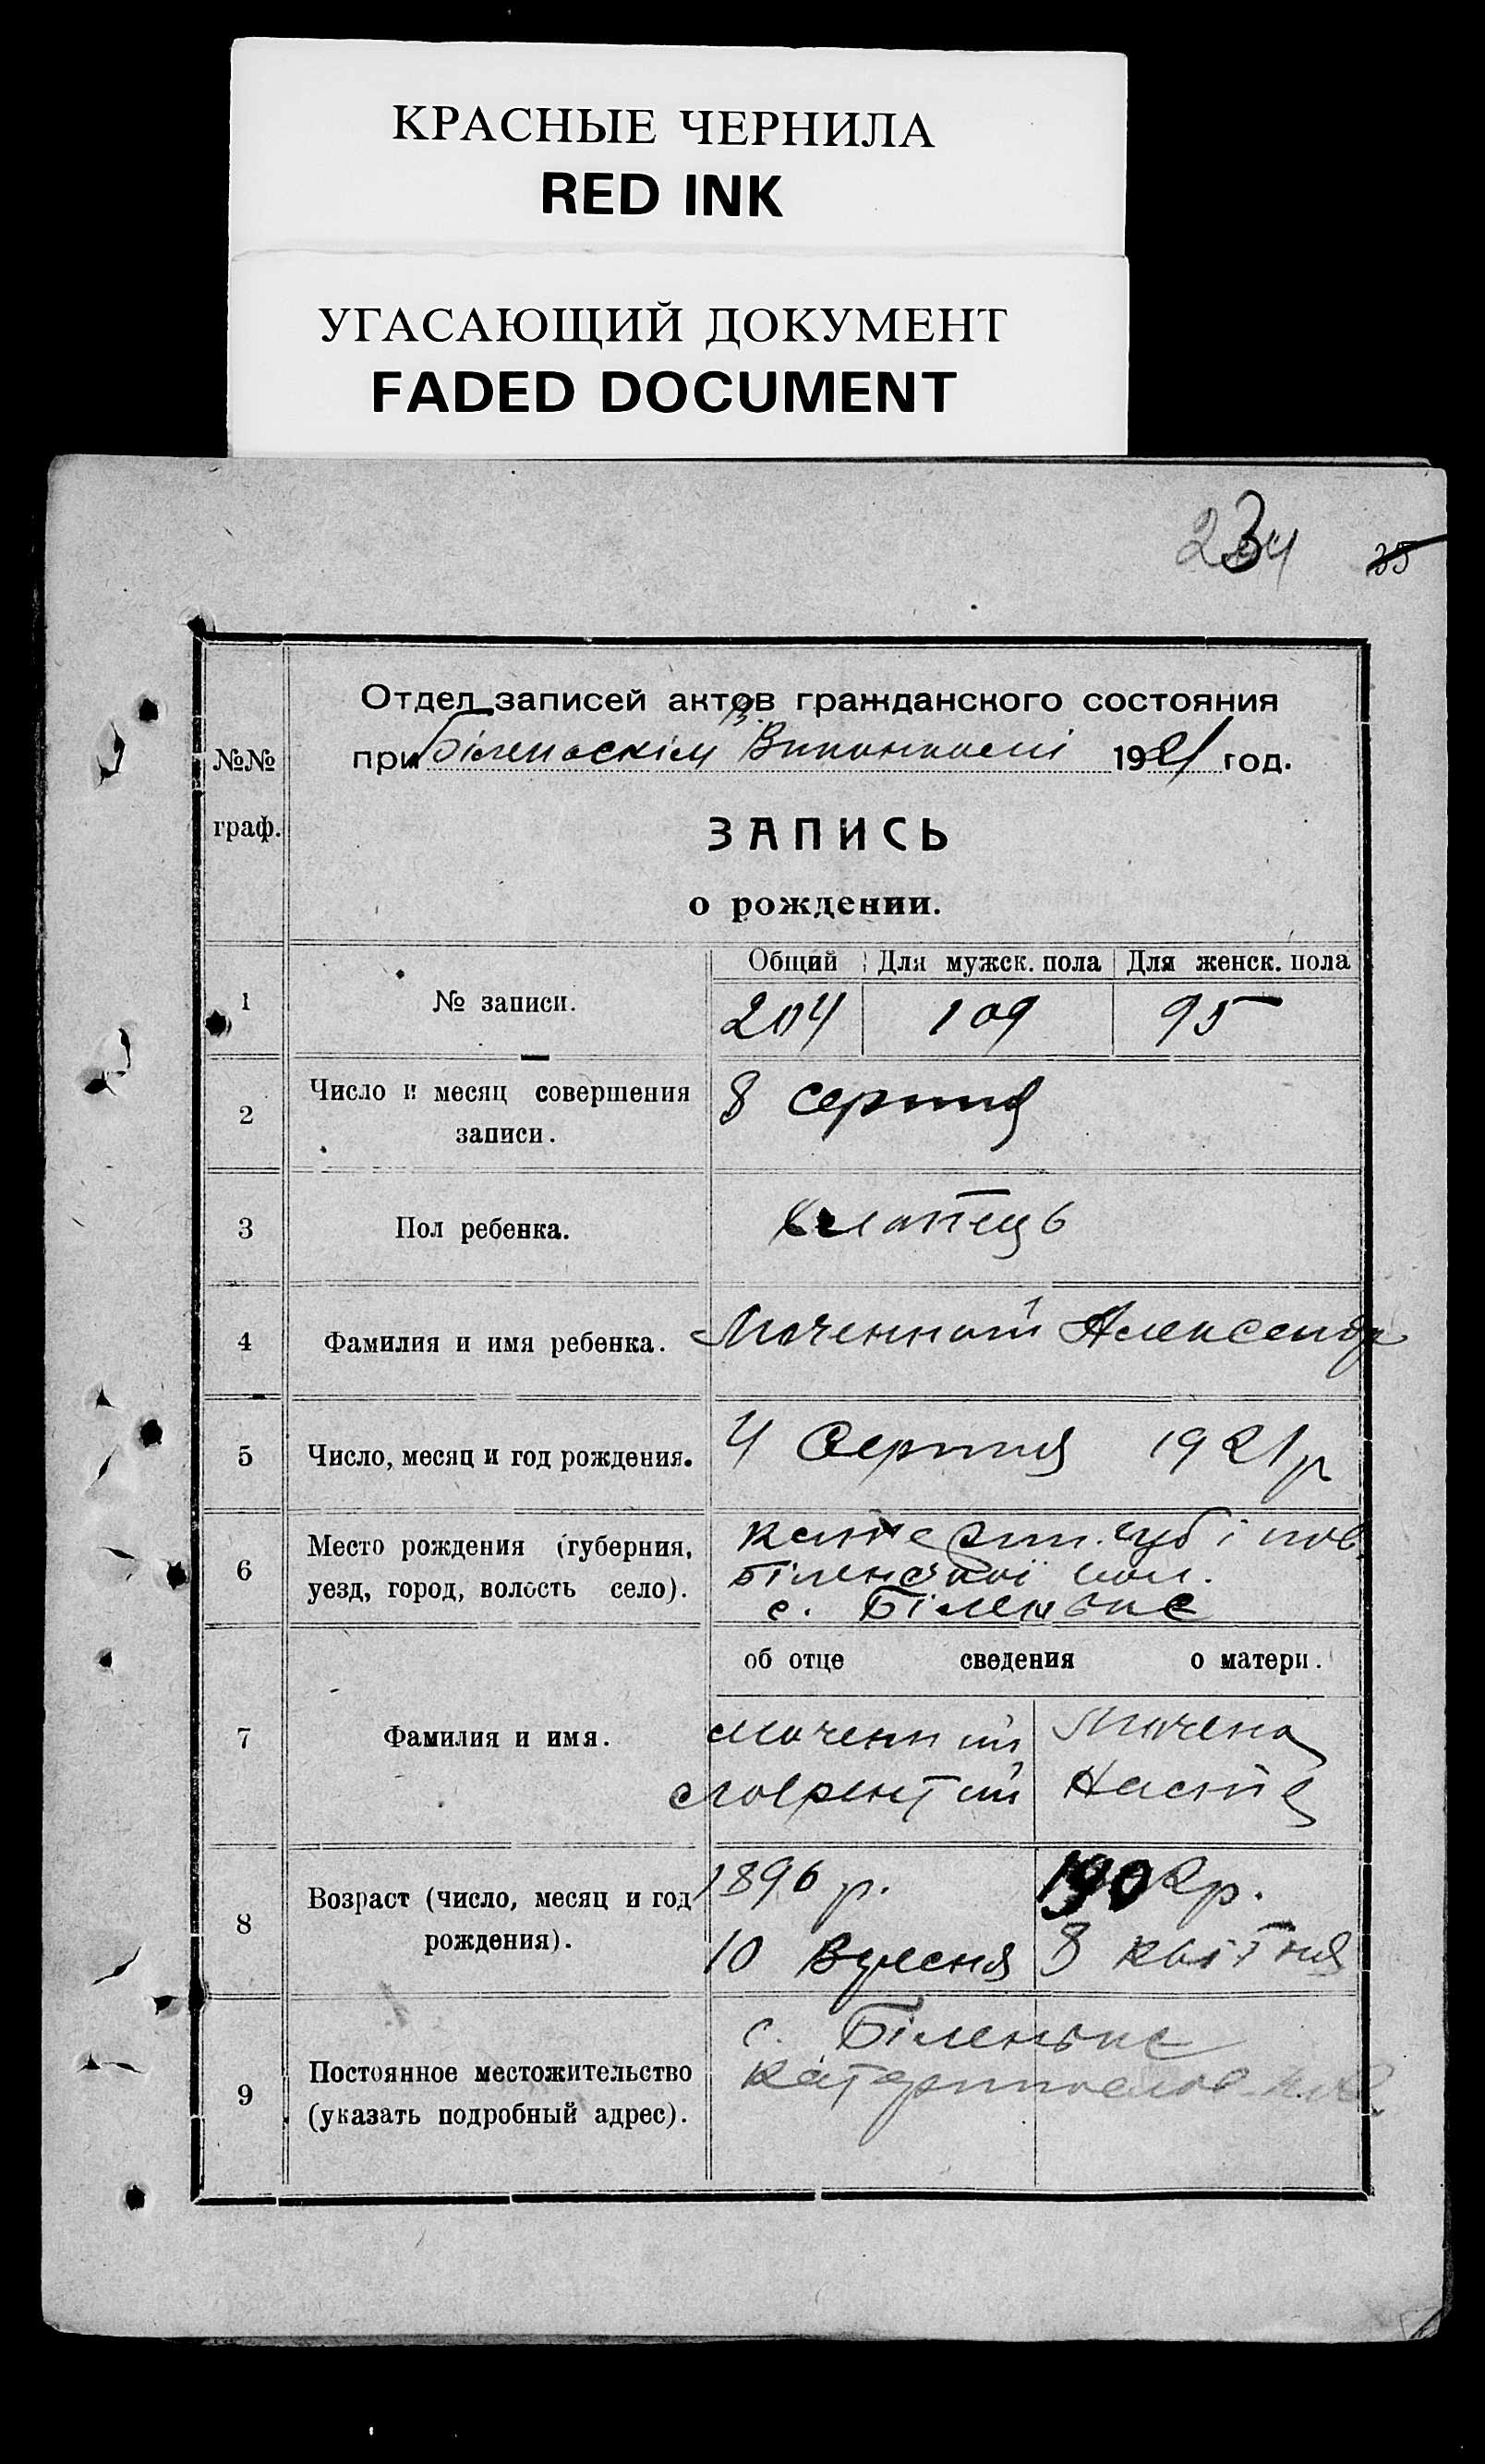 КРАСНЫЕ ЧЕРНИЛА
RED INK
УГАСАЮЩИЙ ДОКУМЕНТ
FADED DOCUMENT
234 35
Отдел записей актов гражданского состояния
при Біленьскім В. Виконкомі 1921 год.
№№
граф.
ЗАПИСЬ
о рождении.
Общий Для мужск. пола Для женск. пола
1 № записи. 204 109 95
2 Число и месяц совершения
записи.
8 серпня
3 Пол ребенка. Хлопець
4 Фамилия и имя ребенка. Моченний Александр
5 Число, месяц и год рождения. 4 Серпня 1921 р
6 Место рождения (губерния,
уезд, город, волость село).
Катерин. губ і пов.
Біленської вол.
с. Біленьке
об отце сведения о матери.
7 Фамилия и имя.
Моченний Мочена
Лаврентий Настя
8 Возраст (число, месяц и год
рождения).
1896 р. 1902 р.
10 Вересня 8 Квітня
9 Постоянное местожительство
(указать подробный адрес).
с. Біленьке